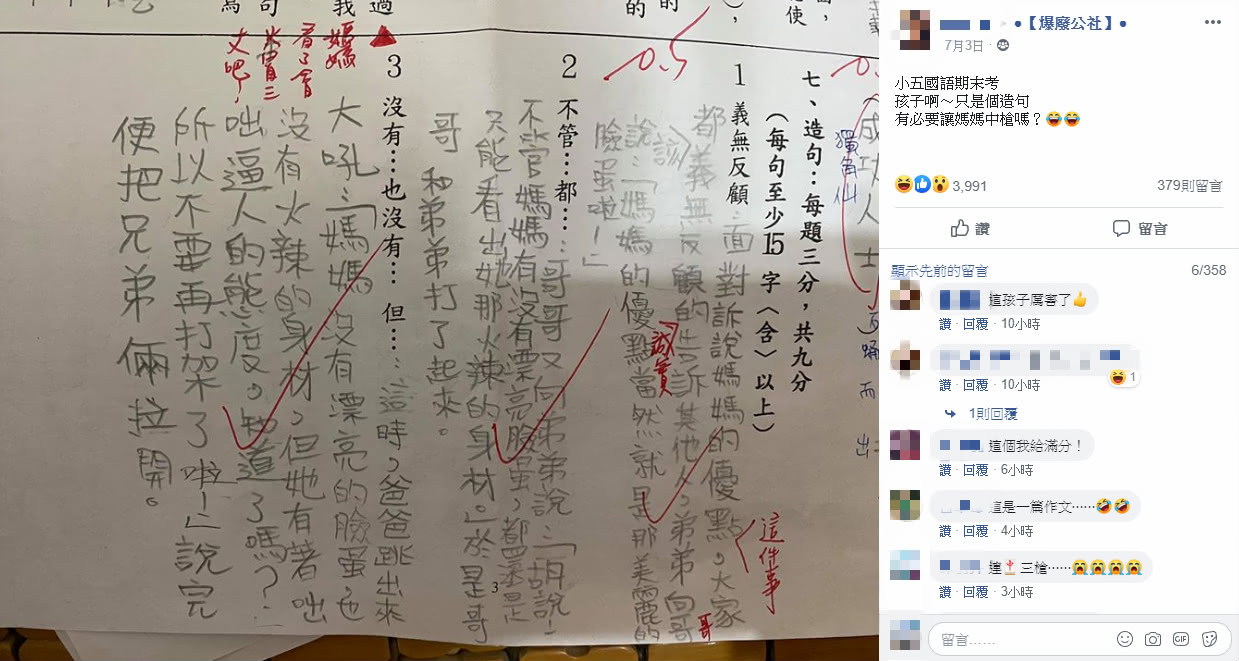 七、造句：每題三分，共九分
（每句至少15字〈含〉以上）
1 義無反顧：面對訴說媽媽的優點。大家
都義無反顧的告訴其他人，弟弟向哥
該
哥
說：「媽媽的優點當然就是那美麗的
臉蛋啦！」
誠實
這件事
0.5
2 不管…都…：哥哥又向弟弟說：「胡說！
不管媽媽有沒有漂亮臉蛋，都還是
只能看出她那火辣的身材。」於是哥
哥和弟弟打了起來。
3 沒有…也沒有… 但…：這時，爸爸跳出來
大吼：「媽媽沒有漂亮的臉蛋也
沒有火辣的身材，但她有著咄
咄逼人的態度。知道了嗎？
所以不要再打架了啦！」說完
便把兄弟倆拉開。
媽媽
看了會
火冒三
丈吧！
成功人士
獨角仙
而
出
使
的
的
過
我
句
為
3
【爆廢公社】
7月3日
小五國語期末考
孩子啊～只是個造句
有必要讓媽媽中槍嗎？😂😂
3,991
379則留言
讚
留言
顯示先前的留言
6/358
這孩子厲害了👍
讚 · 回覆 · 10小時
1
讚 · 回覆 · 10小時
1則回覆
這個我給滿分！
讚 · 回覆 · 6小時
這是一篇作文⋯⋯🤣🤣
讚 · 回覆 · 4小時
三槍⋯⋯😭😭😭😭
讚 · 回覆 · 3小時
留言……
GIF